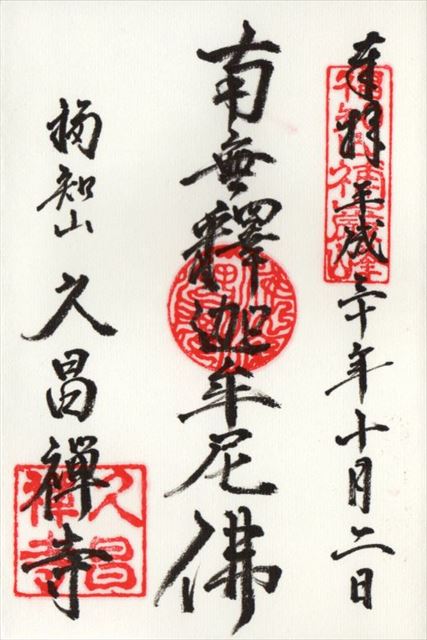 奉拜 平成三十年十月二日
南無釋迦牟尼佛
福知山 久昌禪寺
久昌
禪寺